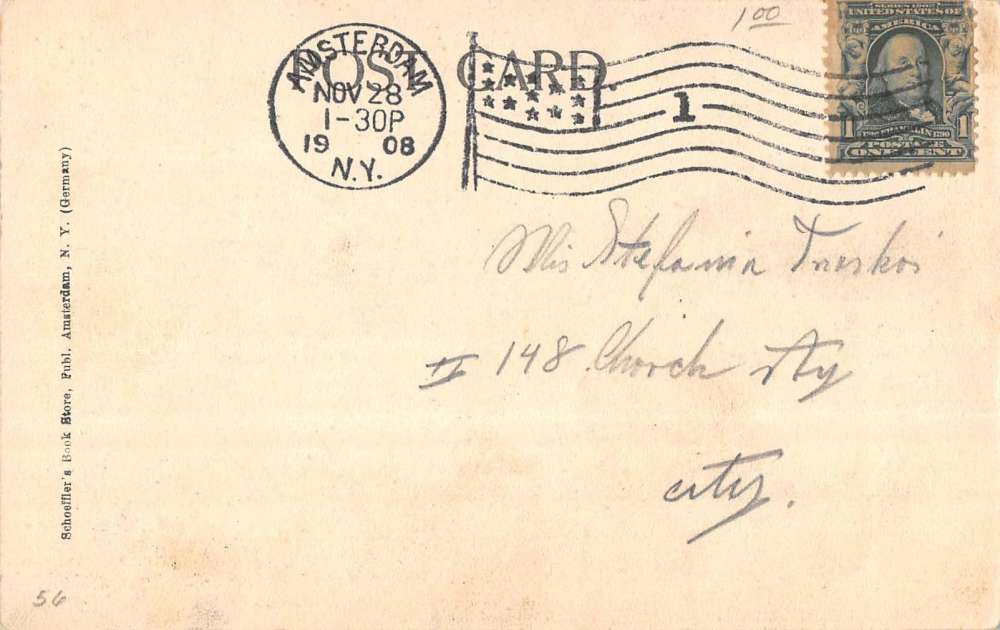 1 00
POST CARD.
AMSTERDAM
NOV 28
1-30P
19 08
N.Y.
1
SERIES 1902
UNITED STATES OF
AMERICA
1706 FRANKLIN 1790
1 1
POSTAGE
ONE CENT
Schoeffler's Book Store, Publ. Amsterdam, N. Y. (Germany)
Mis Stefania
148 Church
city.
56